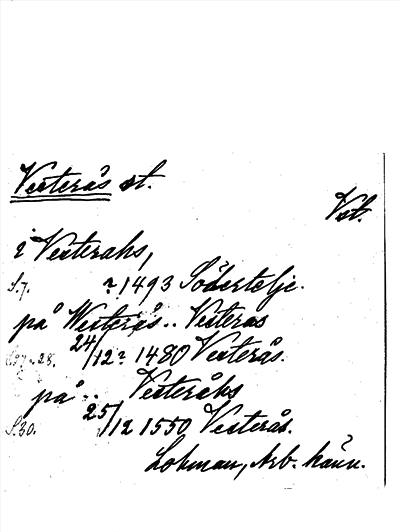 Vesterås st.
Vst.
i Vesterahs,
S.7. ? 1493 Södertelje.
på Westerås.. Vesteras
S.27-28. 24/12? 1480 Vesterås.
på.. Vesteråhs
S.30. 25/12 1550 Vesterås.
Lohman, Arb. känn.